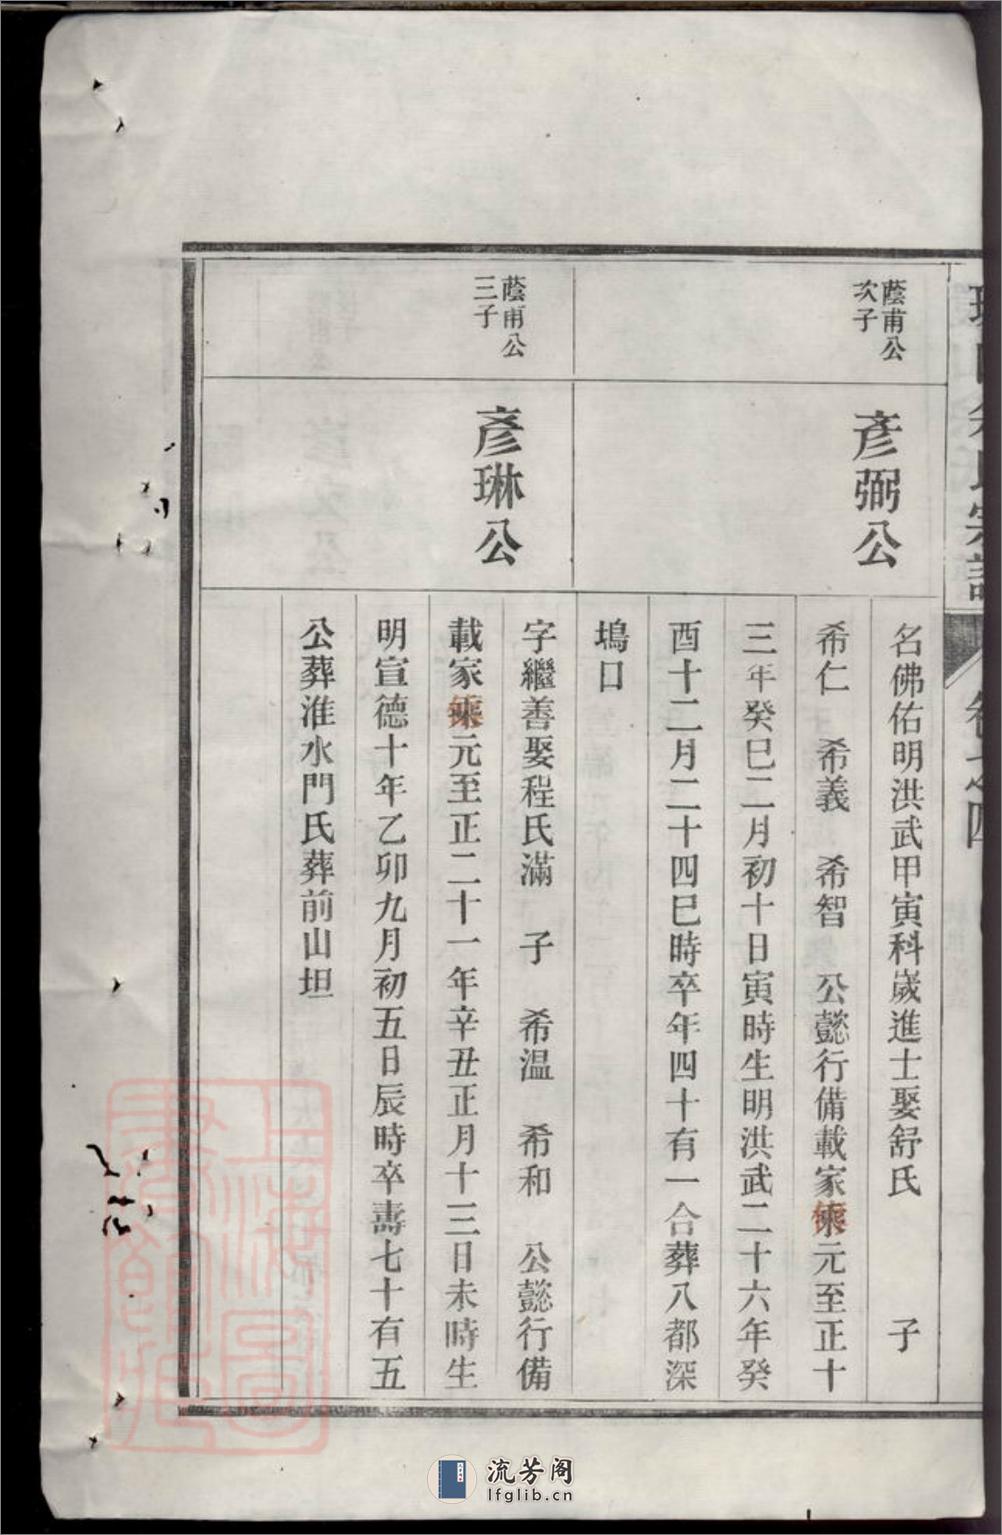 氏宗譜
卷之四
蔭甫公
次子
彥弼公
名佛佑明洪武甲寅科歲進士娶舒氏　子
希仁　希義　希智　公懿行備載家乘元至正十
三年癸巳二月初十日寅時生明洪武二十六年癸
酉十二月二十四巳時卒年四十有一合葬八都深
塢口
蔭甫公
三子
彥琳公
字繼善娶程氏滿　子　希溫　希和　公懿行備
載家乘元至正二十一年辛丑正月十三日未時生
明宣德十年乙卯九月初五日辰時卒壽七十有五
公葬淮水門氏葬前山坦
上海圖
書館藏
流芳阁
lfglib.cn